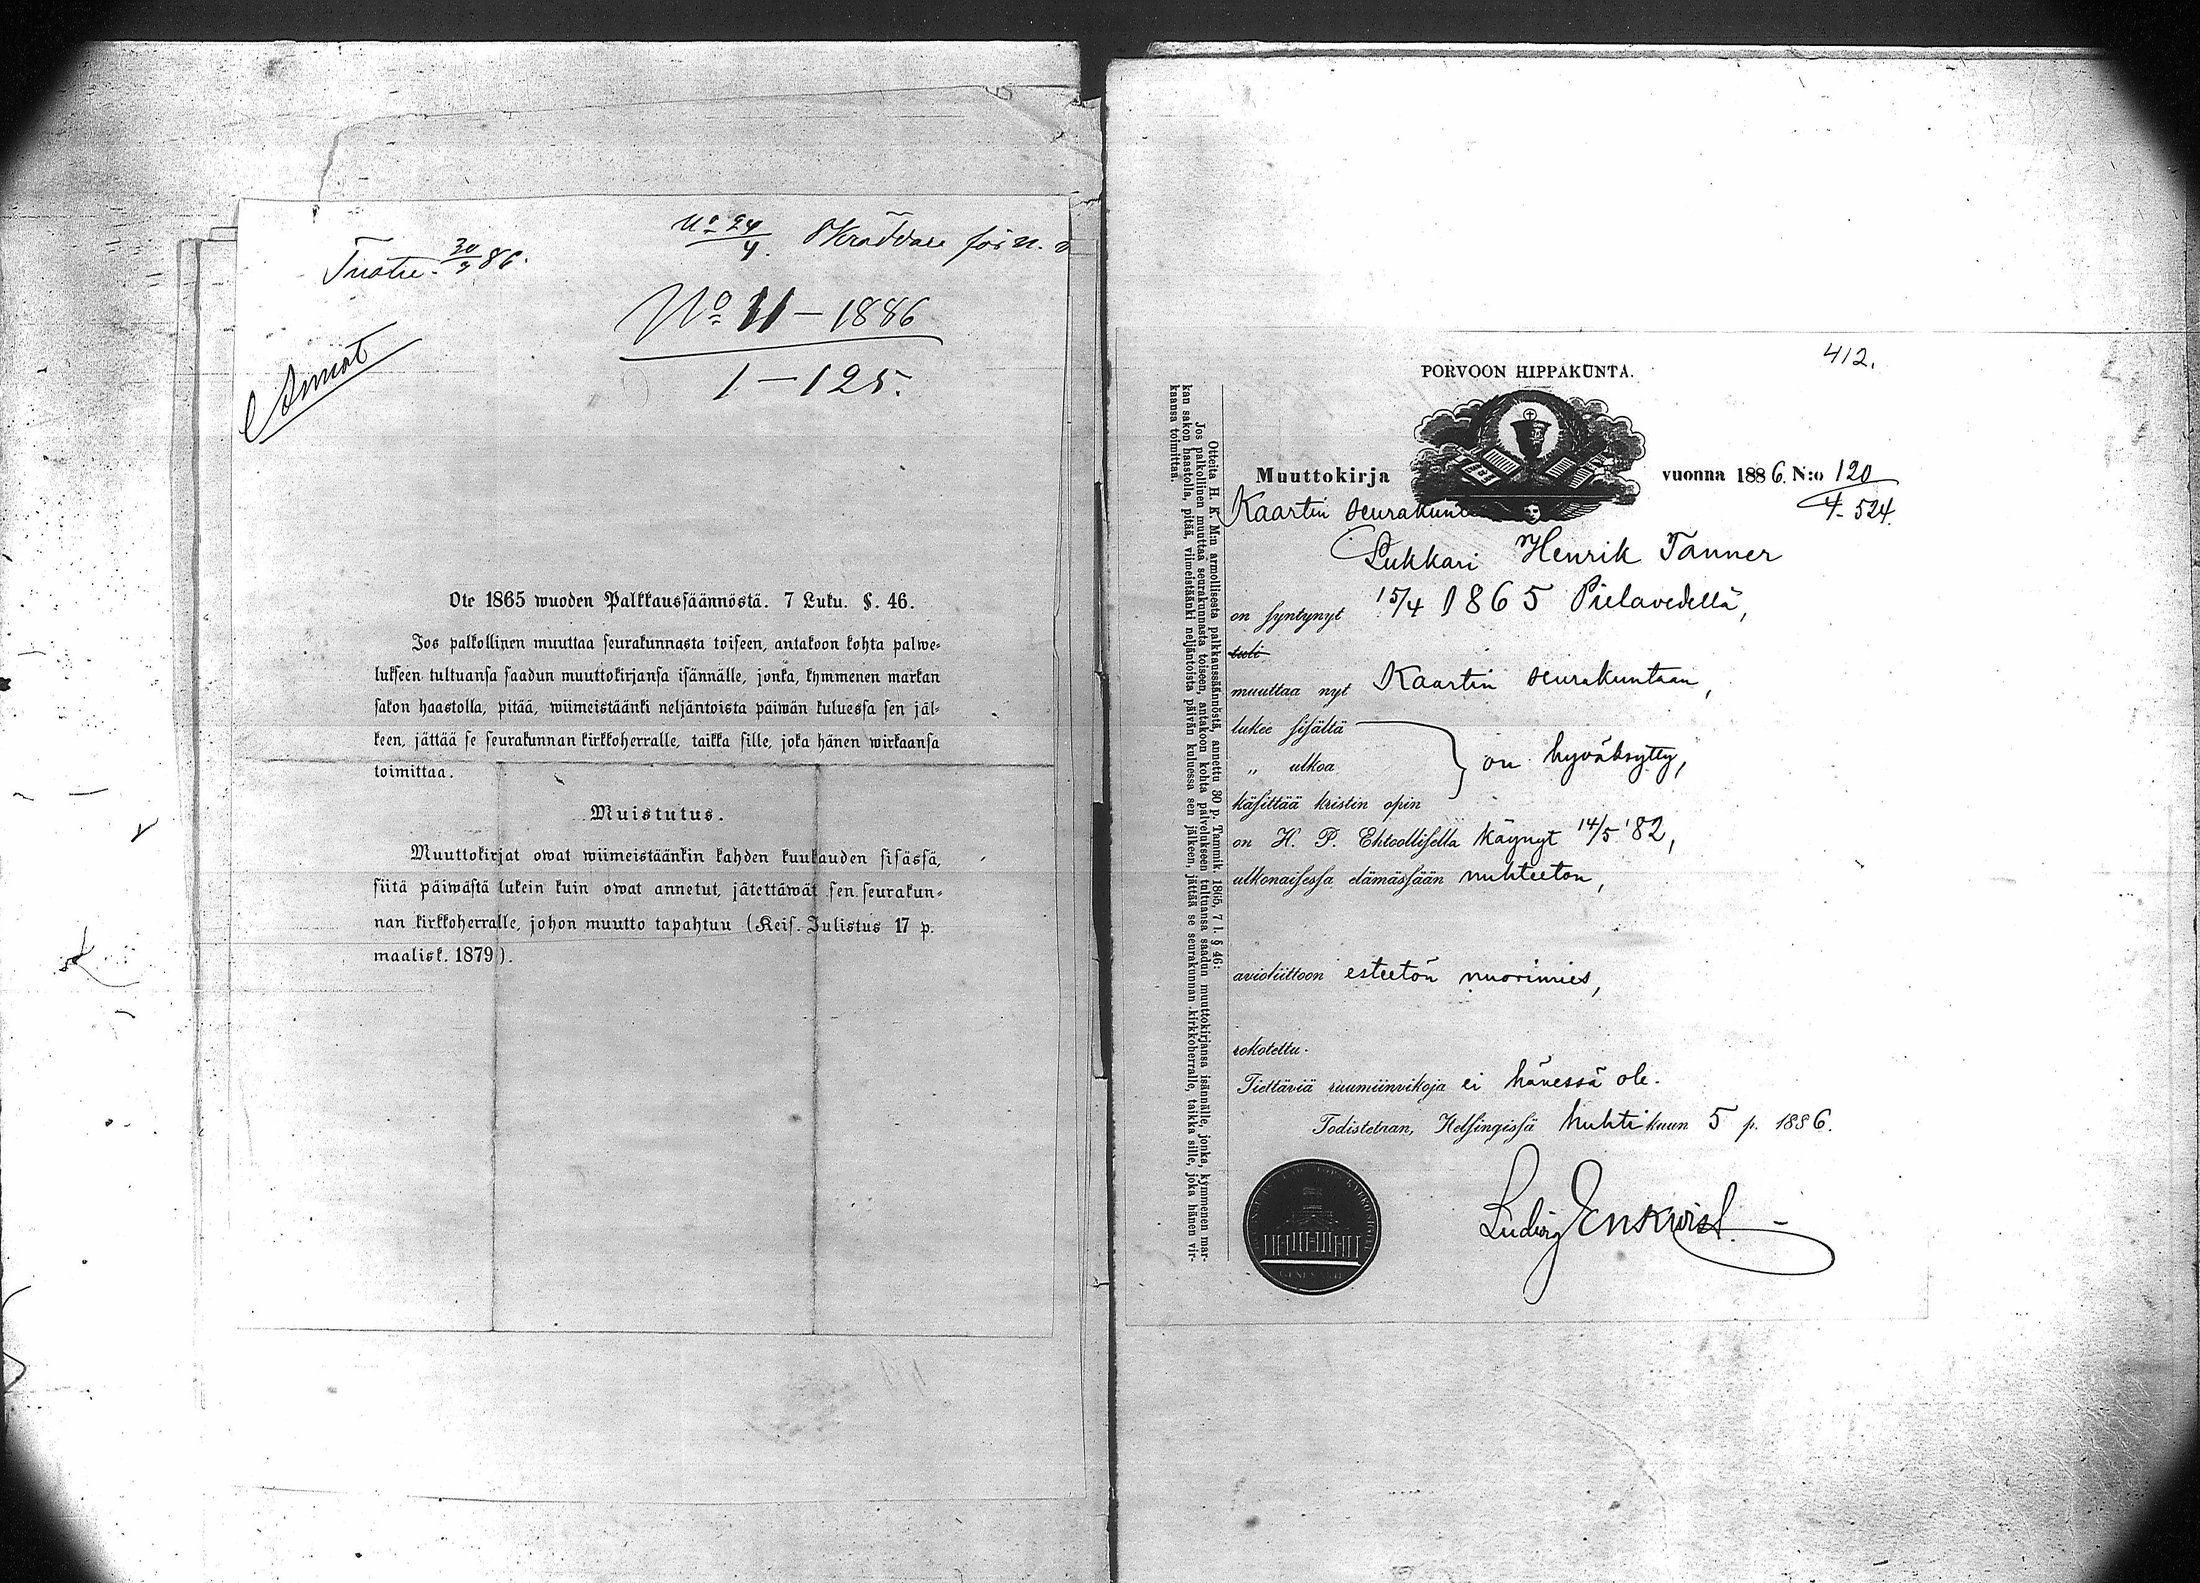 30/3 86.
No 24/4.
No 11 – 1886
1 – 125.
Ote 1865 wuoden Palkkaussäännöstä. 7 Luku. §. 46.
Jos palkollinen muuttaa seurakunnasta toiseen, antakoon kohta palwe-
lukseen tultuansa saadun muuttokirjansa isännälle, jonka, kymmenen markan
sakon haastolla, pitää, wiimeistäänki neljäntoista päiwän kuluessa sen jäl-
keen, jättää se seurakunnan kirkkoherralle, taikka sille, joka hänen wirkaansa
toimittaa.
Muistutus.
Muuttokirjat owat wiimeistäänkin kahden kuukauden sisässä,
siitä päiwästä lukein kuin owat annetut, jätettäwät sen seurakun-
nan kirkkoherralle, johon muutto tapahtuu (Keis. Julistus 17 p.
maalisk. 1879).
412.
PORVOON HIPPAKUNTA.
Muuttokirja vuonna 1886. N:o 120
4-524.
Kaartin seurakunt
Lukkari Henrik Tanner
on syntynyt 15/4 1865 Pielavedellä,
tuli
muuttaa nyt Kaartin seurakuntaan,
lukee sisältä
„ ulkoa } on hyväksytty,
käsittää kristin opin
on H. P. Ehtoollisella käynyt 14/5 '82,
ulkonaisessa elämässään nuhteeton,
avioliittoon esteetön nuorimies,
rokotettu.
Tiettäviä ruumiinvikoja ei hänessä ole.
Todistetaan, Helsingissä huhtikuun 5 p. 1886.
Ludvig Enskvist.
Otteita H. K. M:n armollisesta palkkaussäännöstä, annettu 30 p. Tammik. 1865, 7 l. § 46:
Jos palkollinen muuttaa seurakunnasta toiseen, antakoon kohta palvelukseen tultuansa saadun muuttokirjansa isännälle, jonka, kymmenen mar-
kan sakon haastolla, pitää, viimeistäänki neljäntoista päivän kuluessa sen jälkeen, jättää se seurakunnan kirkkoherralle, taikka sille, joka hänen vir-
kaansa toimittaa.